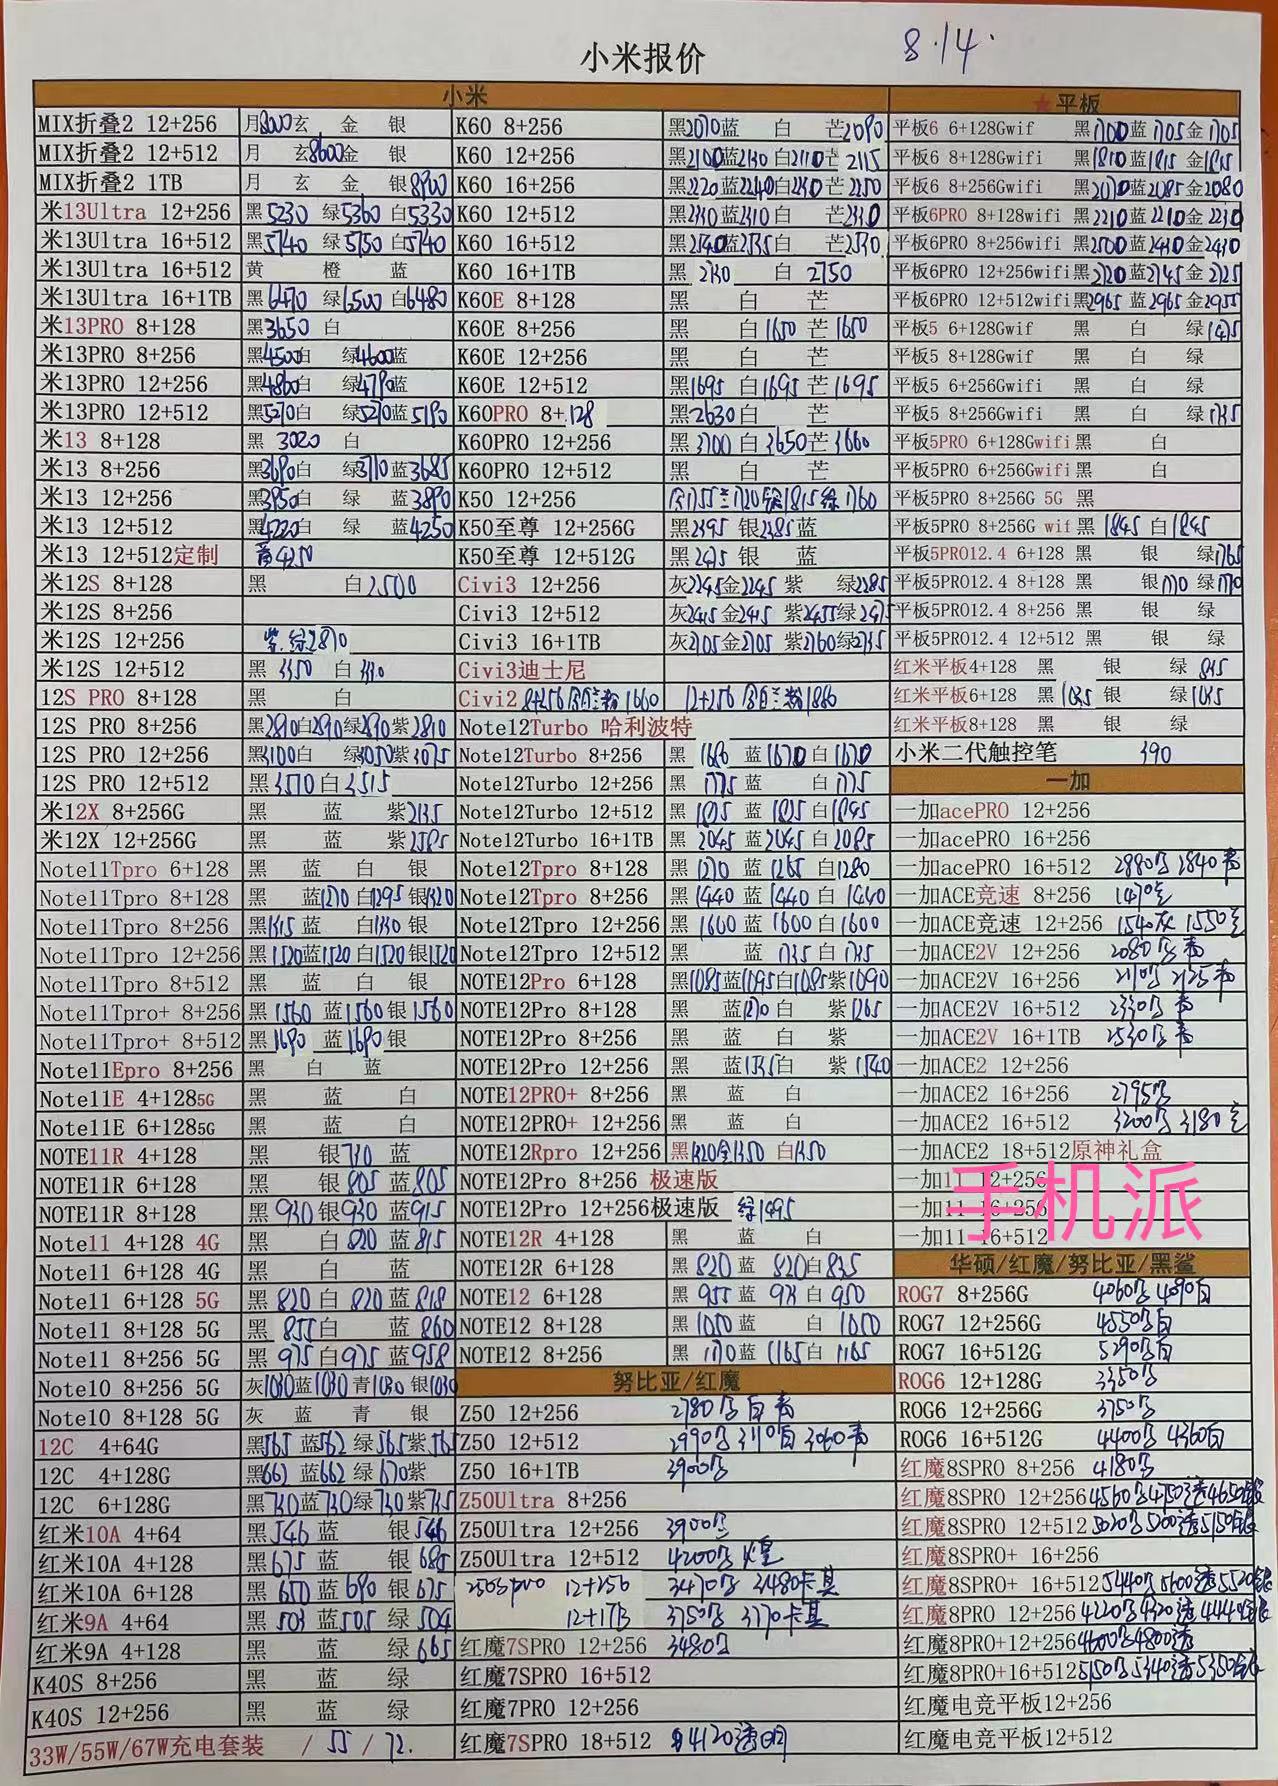 小米报价 8.14.
小米
MIX折叠2 12+256 月8000玄 金 银
MIX折叠2 12+512 月 玄8600金 银
MIX折叠2 1TB 月 玄 金 银8900
米13Ultra 12+256 黑5230 绿5360 白5330
米13Ultra 16+512 黑5740 绿5750 白5740
米13Ultra 16+512 黄 橙 蓝
米13Ultra 16+1TB 黑6470 绿6500 白6480
米13PRO 8+128 黑3650 白
米13PRO 8+256 黑4500白 绿4600蓝
米13PRO 12+256 黑4860白 绿4790蓝
米13PRO 12+512 黑5270白 绿5270蓝5190
米13 8+128 黑 3020 白
米13 8+256 黑3690白 绿3710 蓝3685
米13 12+256 黑3950白 绿 蓝3890
米13 12+512 黑4220白 绿 蓝4250
米13 12+512定制 黄4250
米12S 8+128 黑 白2500
米12S 8+256
米12S 12+256 紫.绿2870
米12S 12+512 黑 3350 白
12S PRO 8+128 黑 白
12S PRO 8+256 黑2890白2890绿2890紫2810
12S PRO 12+256 黑3100白 绿3050紫3075
12S PRO 12+512 黑3570白3515
米12X 8+256G 黑 蓝 紫2135
米12X 12+256G 黑 蓝 紫
Note11Tpro 6+128 黑 蓝 白 银
Note11Tpro 8+128 黑 蓝1270 白1295 银1320
Note11Tpro 8+256 黑1315 蓝 白1330 银
Note11Tpro 12+256 黑1520蓝1520 白1520 银1520
Note11Tpro 8+512 黑 蓝 白 银
Note11Tpro+ 8+256 黑1560 蓝1560 银1560
Note11Tpro+ 8+512 黑1690 蓝1690银
Note11Epro 8+256 黑 白 蓝
Note11E 4+1285G 黑 蓝 白
Note11E 6+1285G 黑 蓝 白
NOTE11R 4+128 黑 银730 蓝
NOTE11R 6+128 黑 银805 蓝805
NOTE11R 8+128 黑930银930 蓝915
Note11 4+128 4G 黑 白820 蓝815
Note11 6+128 4G 黑 白 蓝
Note11 6+128 5G 黑820 白 820 蓝818
Note11 8+128 5G 黑 855白 蓝 860
Note11 8+256 5G 黑 975白975 蓝958
Note10 8+256 5G 灰1030蓝1030 青1030 银1030
Note10 8+128 5G 灰 蓝 青 银
12C 4+64G 黑565 蓝562 绿565紫565
12C 4+128G 黑662 蓝662 绿 670紫
12C 6+128G 黑730蓝730绿730紫735
红米10A 4+64 黑546 蓝 银546
红米10A 4+128 黑675 蓝 银 685
红米10A 6+128 黑650 蓝690 银675
红米9A 4+64 黑503 蓝505 绿504
红米9A 4+128 黑 蓝 绿665
K40S 8+256 黑 蓝 绿
K40S 12+256 黑 蓝 绿
33W/55W/67W充电套装 / 55 / 72.
K60 8+256 黑2070蓝 白 芒2090
K60 12+256 黑2100蓝2130白2110芒2115
K60 16+256 黑2220蓝2240白2230芒2250
K60 12+512 黑2330蓝2310白 芒2330
K60 16+512 黑2540蓝2535白 芒2530
K60 16+1TB 黑 2730 白 2750
K60E 8+128 黑 白 芒
K60E 8+256 黑 白1650 芒1650
K60E 12+256 黑 白 芒
K60E 12+512 黑1695 白1695 芒1695
K60PRO 8+128 黑2630白 芒
K60PRO 12+256 黑2700白2650芒2660
K60PRO 12+512 黑 白 芒
K50 12+256 白1755兰1720银1815绿1760
K50至尊 12+256G 黑2395 银2385蓝
K50至尊 12+512G 黑2475 银 蓝
Civi3 12+256 灰2245金2245 紫 绿2285
Civi3 12+512 灰2415金2415 紫2455绿2475
Civi3 16+1TB 灰2705金2705 紫2760绿2735
Civi3迪士尼
Civi2 8+256 白兰粉1660 12+256 白兰粉1880
Note12Turbo 哈利波特
Note12Turbo 8+256 黑 1680 蓝1670白1670
Note12Turbo 12+256 黑 1775 蓝 白1775
Note12Turbo 12+512 黑 1825 蓝1825白1845
Note12Turbo 16+1TB 黑 2045 蓝2045 白2085
Note12Tpro 8+128 黑1270 蓝1265 白1280
Note12Tpro 8+256 黑1440 蓝1440 白 1440
Note12Tpro 12+256 黑1600蓝1600白1600
Note12Tpro 12+512 黑 蓝 1735 白 1735
NOTE12Pro 6+128 黑1085蓝1095白1085紫1090
NOTE12Pro 8+128 黑 蓝1270 白 紫1265
NOTE12Pro 8+256 黑 蓝 白 紫
NOTE12Pro 12+256 黑 蓝1535白 紫1540
NOTE12PRO+ 8+256 黑 蓝 白
NOTE12PRO+ 12+256 黑 蓝 白
NOTE12Rpro 12+256 黑1320金1350 白1350
NOTE12Pro 8+256 极速版
NOTE12Pro 12+256极速版 绿1495
NOTE12R 4+128 黑 蓝 白
NOTE12R 6+128 黑 820 蓝 820白835
NOTE12 6+128 黑 955 蓝 白 950
NOTE12 8+128 黑 1050蓝 白 1050
NOTE12 8+256 黑 1170蓝 1165白 1165
努比亚/红魔
Z50 12+256 2780 白
Z50 12+512 2990 3110白 3060
Z50 16+1TB 3900
Z50Ultra 8+256
Z50Ultra 12+256 3900
Z50Ultra 12+512 4200 煌
Z50Spro 12+256 3470 3480卡其
12+1TB 3750 3770卡其
红魔7SPRO 12+256 3480
红魔7SPRO 16+512
红魔7PRO 12+256
红魔7SPRO 18+512 4120透明
★平板
平板6 6+128Gwif 黑1700蓝1705金1705
平板6 8+128Gwifi 黑1810蓝1815 金1815
平板6 8+256Gwifi 黑2070蓝2085金2080
平板6PRO 8+128wifi 黑2210蓝2210金2230
平板6PRO 8+256wifi 黑2500蓝2430金2430
平板6PRO 12+256wifi黑2720蓝2745金2725
平板6PRO 12+512wifi黑2965 蓝2965 金2955
平板5 6+128Gwif 黑 白 绿1475
平板5 8+128Gwifi 黑 白 绿
平板5 6+256Gwifi 黑 白 绿
平板5 8+256Gwifi 黑 白 绿1735
平板5PRO 6+128Gwifi黑 白
平板5PRO 6+256Gwifi黑 白
平板5PRO 8+256G 5G 黑
平板5PRO 8+256G wif 黑 1845 白1845
平板5PRO12.4 6+128 黑 银 绿1765
平板5PRO12.4 8+128 黑 银1770 绿1770
平板5PRO12.4 8+256 黑 银 绿
平板5PRO12.4 12+512 黑 银 绿
红米平板4+128 黑 银 绿 845
红米平板6+128 黑1035 银 绿1035
红米平板8+128 黑 银 绿
小米二代触控笔 390
一加
一加acePRO 12+256
一加acePRO 16+256
一加acePRO 16+512 2880 2840
一加ACE竞速 8+256 1470
一加ACE竞速 12+256 1540灰 1550
一加ACE2V 12+256 2080
一加ACE2V 16+256 2110 2125
一加ACE2V 16+512 2330
一加ACE2V 16+1TB 2530
一加ACE2 12+256
一加ACE2 16+256 2795
一加ACE2 16+512 3200 3180
一加ACE2 18+512原神礼盒
一加11 12+256
一加11 16+256
一加11 16+512
手机派
华硕/红魔/努比亚/黑鲨
ROG7 8+256G 4060 4090白
ROG7 12+256G 4550 白
ROG7 16+512G 5290 白
ROG6 12+128G 3350
ROG6 12+256G 3750
ROG6 16+512G 4400 4360白
红魔8SPRO 8+256 4180
红魔8SPRO 12+256 4560 4750透4650银
红魔8SPRO 12+512 5020 5200透5150银
红魔8SPRO+ 16+256
红魔8SPRO+ 16+512 5440 5600透5520银
红魔8PRO 12+256 4220 4320透4440银
红魔8PRO+12+256 4600 4800透
红魔8PRO+16+512 5150 5340透5350银
红魔电竞平板12+256
红魔电竞平板12+512